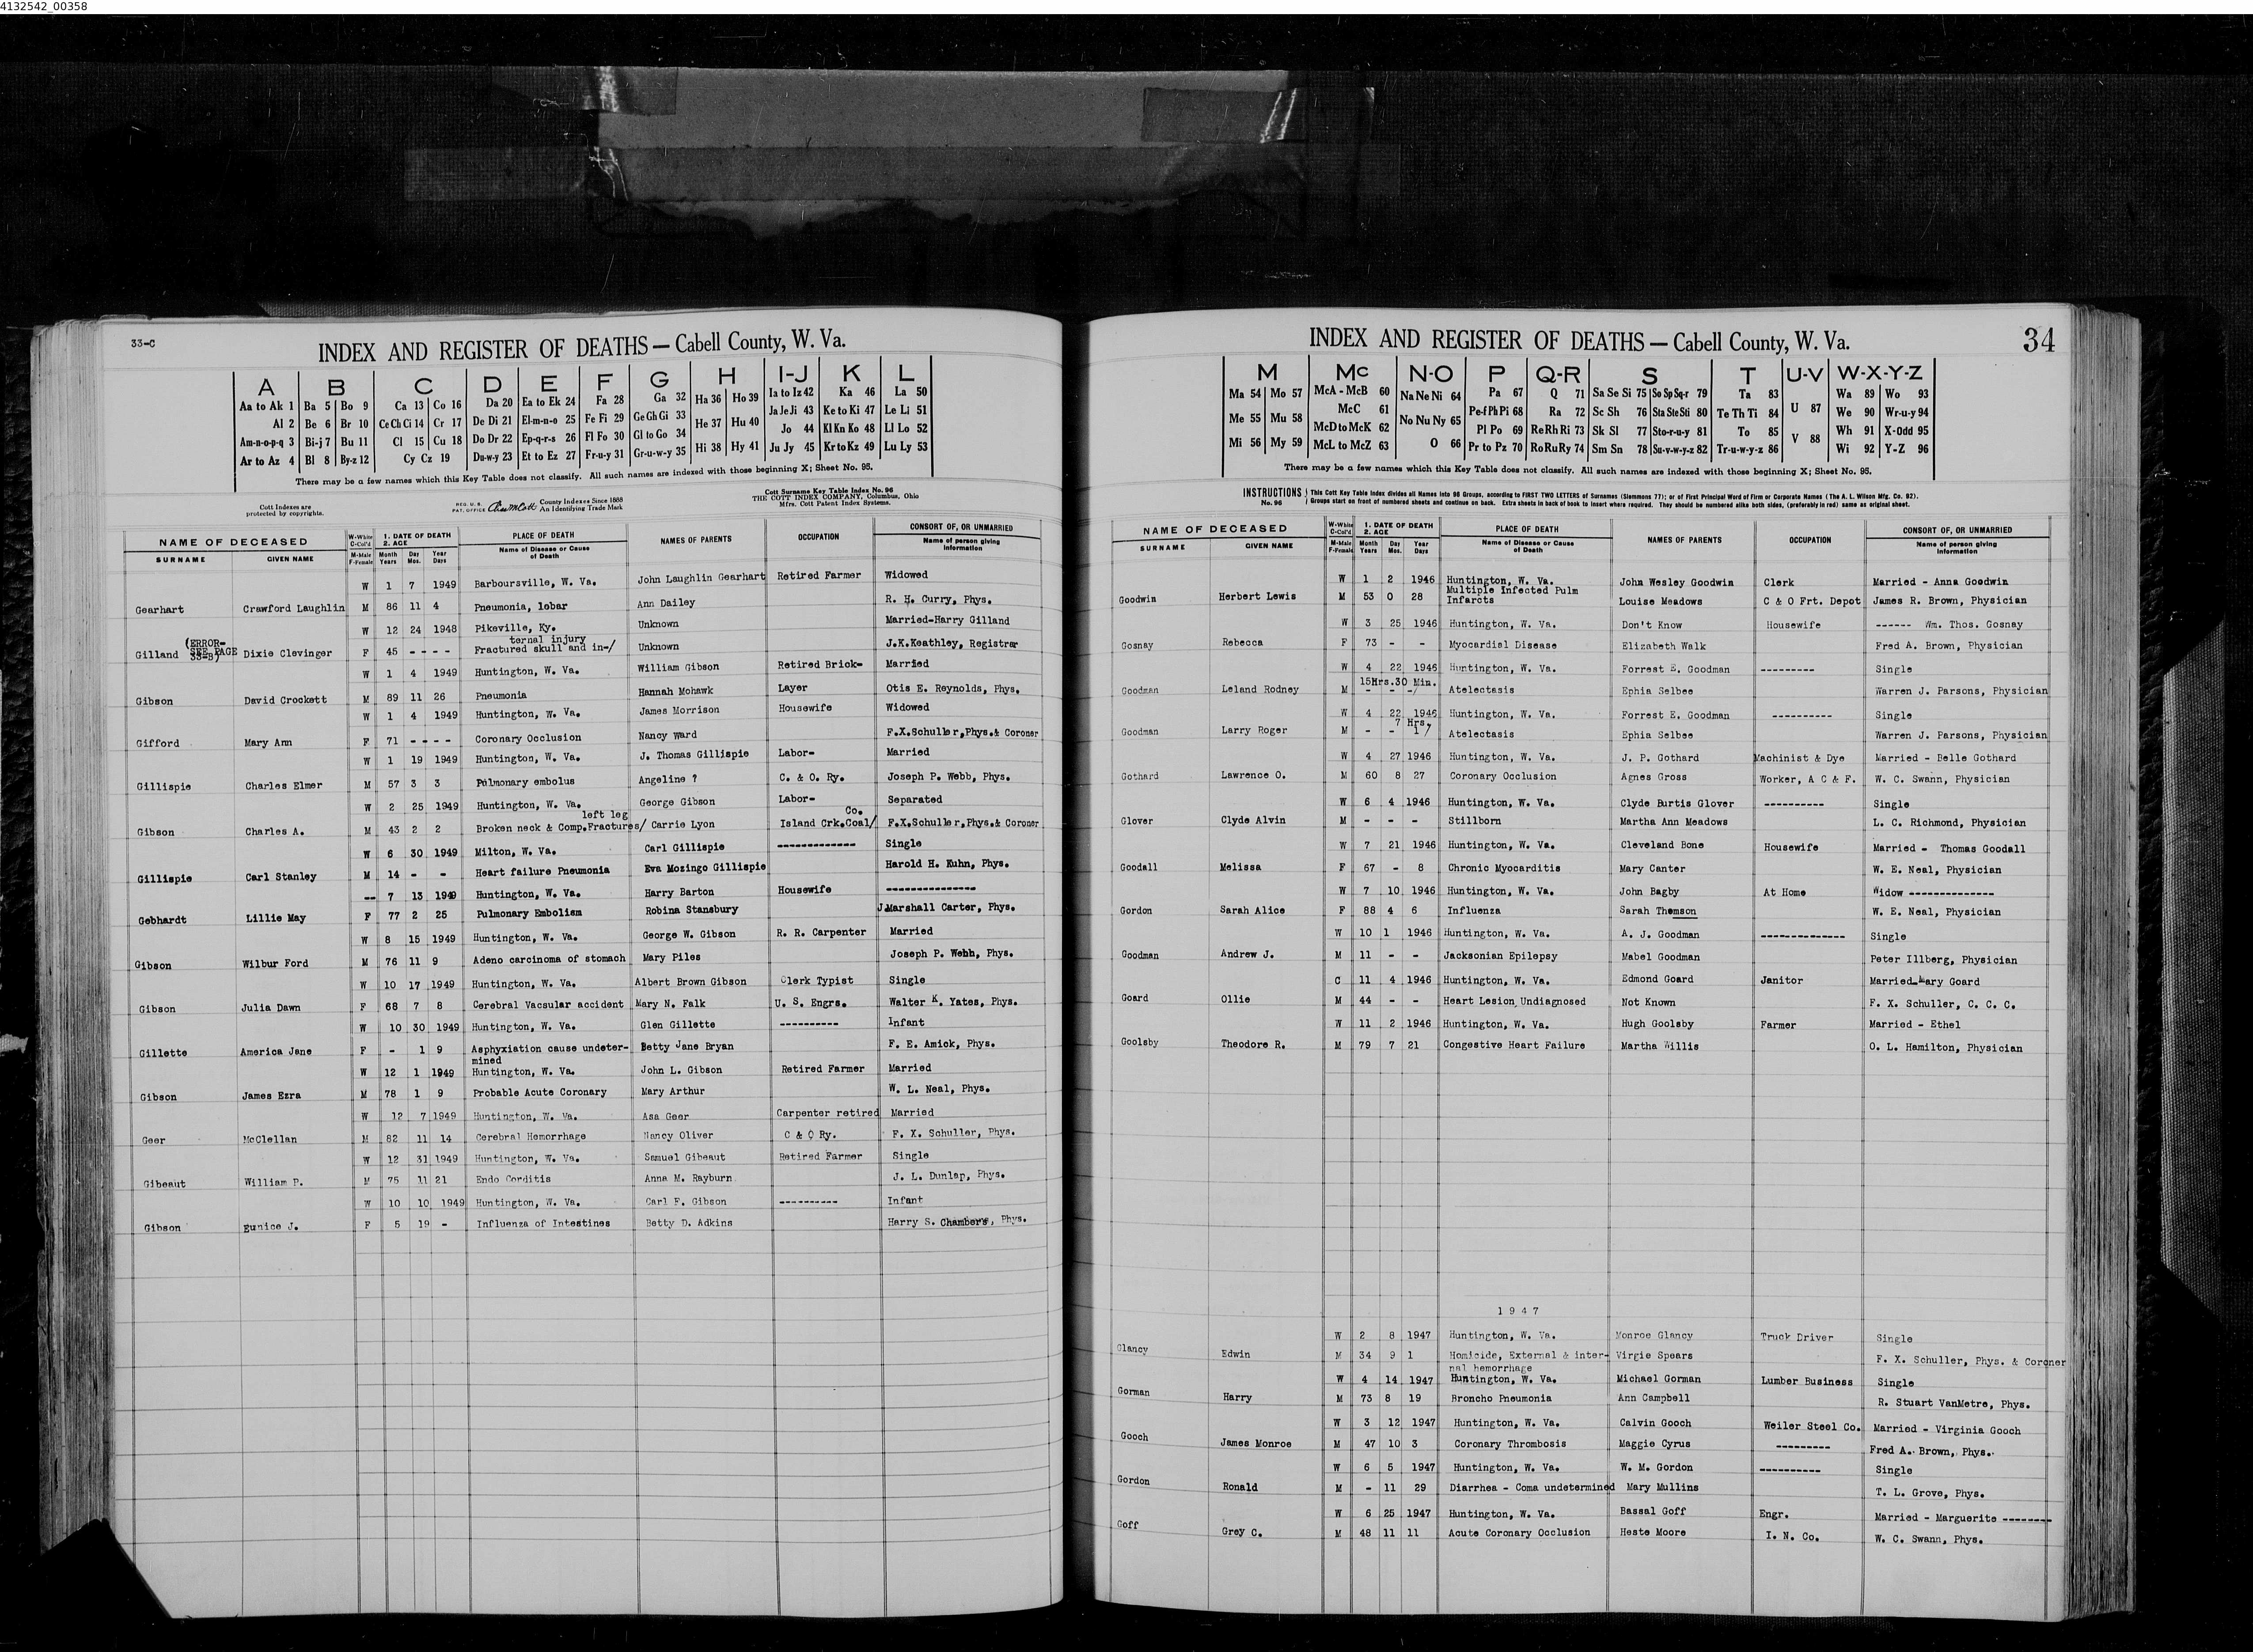 4132542_00358
33-C
INDEX AND REGISTER OF DEATHS — Cabell County, W. Va.
A B C D E F G H I-J K L
Aa to Ak 1 Ba 5 Bo 9 Ca 13 Co 16 Da 20 Ea to Ek 24 Fa 28 Ga 32 Ha 36 Ho 39 Ia to Iz 42 Ka 46 La 50
Al 2 Be 6 Br 10 Ce Ch Ci 14 Cr 17 De Di 21 El-m-n-o 25 Fe Fi 29 Ge Gh Gi 33 He 37 Hu 40 Ja Je Ji 43 Ke to Ki 47 Le Li 51
Am-n-o-p-q 3 Bi-j 7 Bu 11 Cl 15 Cu 18 Do Dr 22 Ep-q-r-s 26 Fl Fo 30 Gl to Go 34 Jo 44 Kl Kn Ko 48 Ll Lo 52
Ar to Az 4 Bl 8 By-z 12 Cy Cz 19 Du-w-y 23 Et to Ez 27 Fr-u-y 31 Gr-u-w-y 35 Hi 38 Hy 41 Ju Jy 45 Kr to Kz 49 Lu Ly 53
There may be a few names which this Key Table does not classify. All such names are indexed with those beginning X; Sheet No. 95.
Cott Indexes are
protected by copyrights.
REG. U. S.
PAT. OFFICE
County Indexes Since 1888
An Identifying Trade Mark
Cott Surname Key Table Index No. 96
THE COTT INDEX COMPANY, Columbus, Ohio
Mfrs. Cott Patent Index Systems.
NAME OF DECEASED W-White C-Col'd 1. DATE OF DEATH 2. AGE PLACE OF DEATH NAMES OF PARENTS OCCUPATION CONSORT OF, OR UNMARRIED
SURNAME GIVEN NAME M-Male F-Female Month Years Day Mos. Year Days Name of Disease or Cause of Death Name of person giving Information
W 1 7 1949 Barboursville, W. Va. John Laughlin Gearhart Retired Farmer Widowed
Gearhart Crawford Laughlin M 86 11 4 Pneumonia, lobar Ann Dailey R. H. Curry, Phys.
W 12 24 1948 Pikeville, Ky. Unknown Married-Harry Gilland
Gilland (ERROR- SEE PAGE 33-B) Dixie Clevinger F 45 - - - - Fractured skull and in-/ ternal injury Unknown J.K.Keathley, Registrar
W 1 4 1949 Huntington, W. Va. William Gibson Retired Brick- Married
Gibson David Crockett M 89 11 26 Pneumonia Hannah Mohawk Layer Otis E. Reynolds, Phys.
W 1 4 1949 Huntington, W. Va. James Morrison Housewife Widowed
Gifford Mary Ann F 71 - - - - Coronary Occlusion Nancy Ward F.X.Schuller,Phys.& Coroner
W 1 19 1949 Huntington, W. Va. J. Thomas Gillispie Labor- Married
Gillispie Charles Elmer M 57 3 3 Pulmonary embolus Angeline ? C. & O. Ry. Joseph P. Webb, Phys.
W 2 25 1949 Huntington, W. Va. George Gibson Labor- Separated
Gibson Charles A. M 43 2 2 Broken neck & Comp.Fractures/ left leg Carrie Lyon Island Crk.Coal/ Co. F.X.Schuller,Phys.& Coroner
W 6 30 1949 Milton, W. Va. Carl Gillispie ------------- Single
Gillispie Carl Stanley M 14 - - Heart failure Pneumonia Eva Mozingo Gillispie Harold H. Kuhn, Phys.
-- 7 13 1949 Huntington, W. Va. Harry Barton Housewife ---------------
Gebhardt Lillie May F 77 2 25 Pulmonary Embolism Robina Stansbury J.Marshall Carter, Phys.
W 8 15 1949 Huntington, W. Va. George W. Gibson R. R. Carpenter Married
Gibson Wilbur Ford M 76 11 9 Adeno carcinoma of stomach Mary Piles Joseph P. Webb, Phys.
W 10 17 1949 Huntington, W. Va. Albert Brown Gibson Clerk Typist Single
Gibson Julia Dawn F 68 7 8 Cerebral Vacsular accident Mary N. Falk U. S. Engrs. Walter K. Yates, Phys.
W 10 30 1949 Huntington, W. Va. Glen Gillette ---------- Infant
Gillette America Jane F - 1 9 Asphyxiation cause undeter- Betty Jane Bryan F. E. Amick, Phys.
mined
W 12 1 1949 Huntington, W. Va. John L. Gibson Retired Farmer Married
Gibson James Ezra M 78 1 9 Probable Acute Coronary Mary Arthur W. L. Neal, Phys.
W 12 7 1949 Huntington, W. Va. Asa Geer Carpenter retired Married
Geer McClellan M 82 11 14 Cerebral Hemorrhage Nancy Oliver C & O Ry. F. X. Schuller, Phys.
W 12 31 1949 Huntington, W. Va. Samuel Gibeaut Retired Farmer Single
Gibeaut William P. M 75 11 21 Endo Corditis Anna M. Rayburn J. L. Dunlap, Phys.
W 10 10 1949 Huntington, W. Va. Carl F. Gibson ---------- Infant
Gibson Eunice J. F 5 19 - Influenza of Intestines Betty D. Adkins Harry S. Chambers, Phys.
INDEX AND REGISTER OF DEATHS — Cabell County, W. Va.
34
M Mc N-O P Q-R S T U-V W-X-Y-Z
Ma 54 Mo 57 McA - McB 60 Na Ne Ni 64 Pa 67 Q 71 Sa Se Si 75 So Sp Sq-r 79 Ta 83 U 87 Wa 89 Wo 93
Me 55 Mu 58 McC 61 No Nu Ny 65 Pe-f Ph Pi 68 Ra 72 Sc Sh 76 Sta Ste Sti 80 Te Th Ti 84 We 90 Wr-u-y 94
McD to McK 62 Pl Po 69 Re Rh Ri 73 Sk Sl 77 Sto-r-u-y 81 To 85 V 88 Wh 91 X-Odd 95
Mi 56 My 59 McL to McZ 63 O 66 Pr to Pz 70 Ro Ru Ry 74 Sm Sn 78 Su-v-w-y-z 82 Tr-u-w-y-z 86 Wi 92 Y-Z 96
There may be a few names which this Key Table does not classify. All such names are indexed with those beginning X; Sheet No. 95.
INSTRUCTIONS No. 96
This Cott Key Table Index divides all Names into 96 Groups, according to FIRST TWO LETTERS of Surnames (Slemmons 77); or of First Principal Word of Firm or Corporate Names (The A. L. Wilson Mfg. Co. 92).
Groups start on front of numbered sheets and continue on back. Extra sheets in back of book to insert where required. They should be numbered alike both sides, (preferably in red) same as original sheet.
NAME OF DECEASED W-White C-Col'd 1. DATE OF DEATH 2. AGE PLACE OF DEATH NAMES OF PARENTS OCCUPATION CONSORT OF, OR UNMARRIED
SURNAME GIVEN NAME M-Male F-Female Month Years Day Mos. Year Days Name of Disease or Cause of Death Name of person giving Information
W 1 2 1946 Huntington, W. Va. John Wesley Goodwin Clerk Married - Anna Goodwin
Goodwin Herbert Lewis M 53 0 28 Multiple Infected Pulm Infarcts Louise Meadows C & O Frt. Depot James R. Brown, Physician
W 3 25 1946 Huntington, W. Va. Don't Know Housewife ------ Wm. Thos. Gosnay
Gosnay Rebecca F 73 - - Myocardial Disease Elizabeth Walk Fred A. Brown, Physician
W 4 22 1946 Huntington, W. Va. Forrest E. Goodman --------- Single
Goodman Leland Rodney M 15Hrs.30 Min. - - -/ Atelectasis Ephia Selbee Warren J. Parsons, Physician
W 4 22 1946 Huntington, W. Va. Forrest E. Goodman ---------- Single
Goodman Larry Roger M - - 7 Hrs. 1/ Atelectasis Ephia Selbee Warren J. Parsons, Physician
W 4 27 1946 Huntington, W. Va. J. P. Gothard Machinist & Dye Married - Belle Gothard
Gothard Lawrence O. M 60 8 27 Coronary Occlusion Agnes Gross Worker, A C & F. W. C. Swann, Physician
W 6 4 1946 Huntington, W. Va. Clyde Burtis Glover ---------- Single
Glover Clyde Alvin M - - - Stillborn Martha Ann Meadows L. C. Richmond, Physician
W 7 21 1946 Huntington, W. Va. Cleveland Bone Housewife Married - Thomas Goodall
Goodall Melissa F 67 - 8 Chronic Myocarditis Mary Canter W. E. Neal, Physician
W 7 10 1946 Huntington, W. Va. John Bagby At Home Widow --------------
Gordon Sarah Alice F 88 4 6 Influenza Sarah Thomson W. E. Neal, Physician
W 10 1 1946 Huntington, W. Va. A. J. Goodman -------------- Single
Goodman Andrew J. M 11 - - Jacksonian Epilepsy Mabel Goodman Peter Illberg, Physician
C 11 4 1946 Huntington, W. Va. Edmond Goard Janitor Married-Mary Goard
Goard Ollie M 44 - - Heart Lesion Undiagnosed Not Known F. X. Schuller, C. C. C.
W 11 2 1946 Huntington, W. Va. Hugh Goolsby Farmer Married - Ethel
Goolsby Theodore R. M 79 7 21 Congestive Heart Failure Martha Willis O. L. Hamilton, Physician
1 9 4 7
W 2 8 1947 Huntington, W. Va. Monroe Glancy Truck Driver Single
Glancy Edwin M 34 9 1 Homicide, External & inter- Virgie Spears F. X. Schuller, Phys. & Coroner
nal hemorrhage
W 4 14 1947 Huntington, W. Va. Michael Gorman Lumber Business Single
Gorman Harry M 73 8 19 Broncho Pneumonia Ann Campbell R. Stuart VanMetre, Phys.
W 3 12 1947 Huntington, W. Va. Calvin Gooch Weiler Steel Co. Married - Virginia Gooch
Gooch James Monroe M 47 10 3 Coronary Thrombosis Maggie Cyrus --------- Fred A. Brown, Phys.
W 6 5 1947 Huntington, W. Va. W. M. Gordon ---------- Single
Gordon Ronald M - 11 29 Diarrhea - Coma undetermined Mary Mullins T. L. Grove, Phys.
W 6 25 1947 Huntington, W. Va. Bassal Goff Engr. Married - Marguerite --------
Goff Grey C. M 48 11 11 Acute Coronary Occlusion Heste Moore I. N. Co. W. C. Swann, Phys.